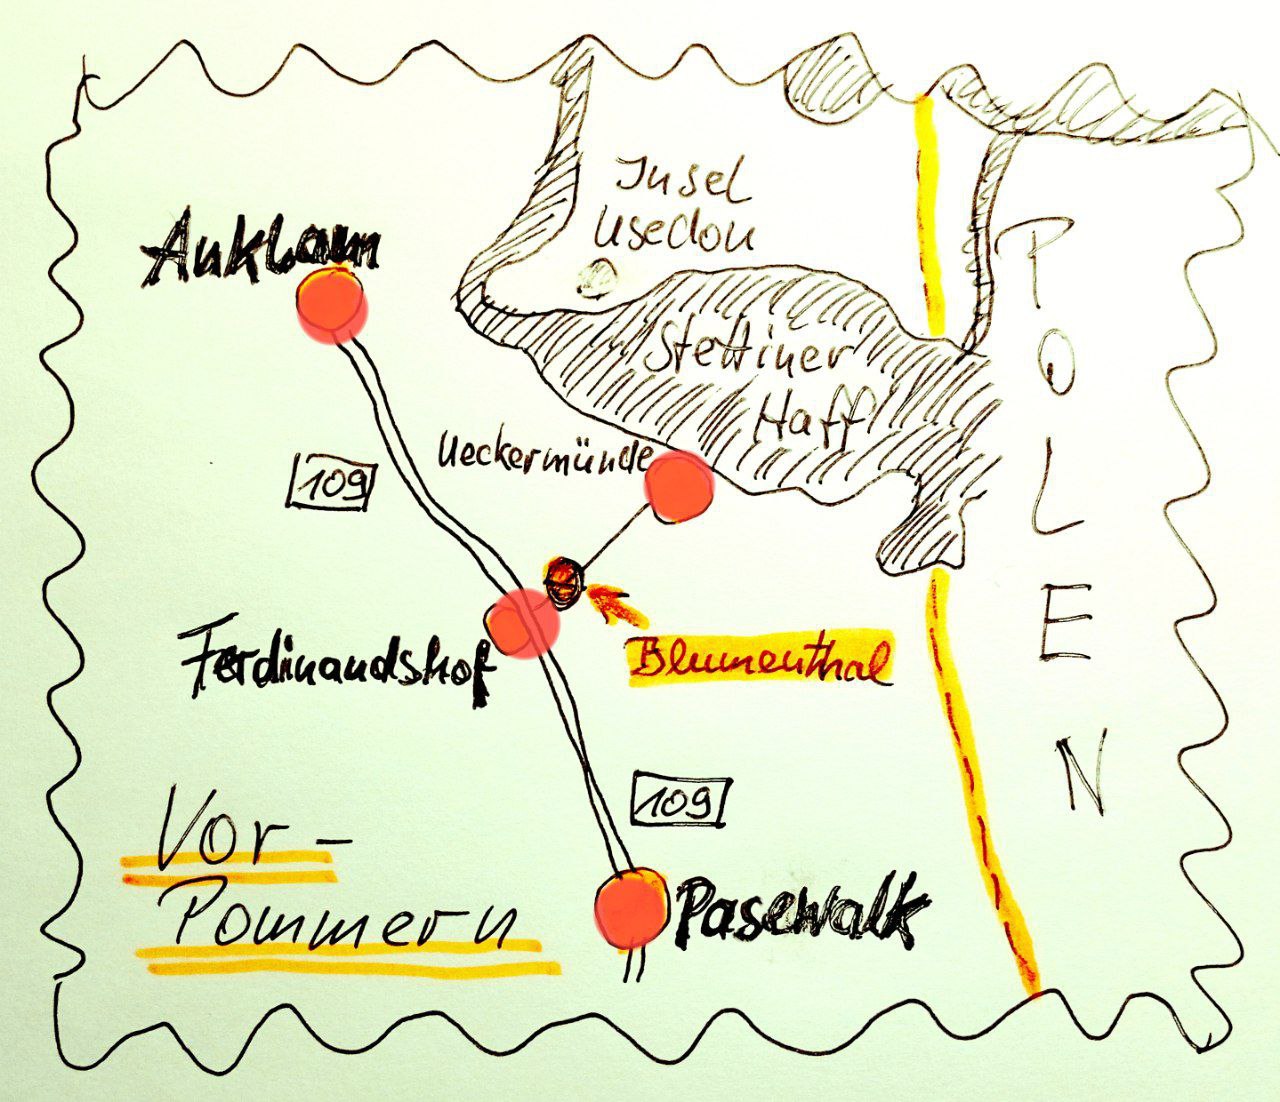 Insel
Usedom
Anklam
P
O
L
E
N
Stettiner
Haff
Ueckermünde
109
Ferdinandshof
Blumenthal
109
Vor-
Pommern
Pasewalk